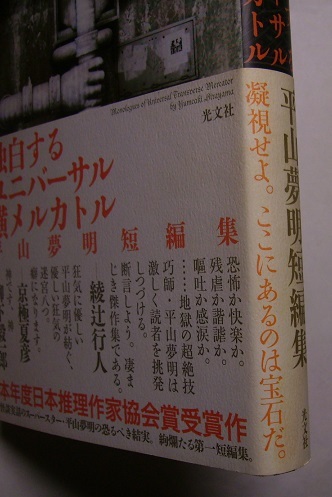 Monologues of Universal Transverse Mercator
by Yumeaki Hirayama
光文社
独白する
ユニバーサル
横メルカトル
平山夢明短編集
恐怖か快楽か。
残虐か諧謔か。
嘔吐か感涙か。
……地獄の超絶技
巧師・平山夢明は
激しく読者を挑発
しつづける。
断言しよう。凄ま
じき傑作である。
──綾辻行人
狂気に優しい
平山夢明が紡ぐ、
優しい狂気の
癖になります。
──京極夏彦
本年度日本推理作家協会賞受賞作
スーパースター・平山夢明の恐るべき結実。絢爛たる第一短編集。
サル
カトル
平山夢明短編集
凝視せよ。ここにあるのは宝石だ。
光文社